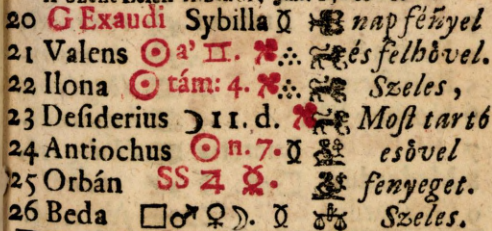 20 G Exaudi Sybilla ☿ nap fényel
21 Valens ☉ a' II. és felhövel.
22 Ilona ☉ tám: 4. Szeles,
23 Desiderius ☽ 11. d. Most tartó
24 Antiochus ☉ n. 7. ☿ esövel
25 Orbán SS ♃ ☿. fenyeget.
26 Beda □ ♂ ♀ ☽. ☿ ♎ Szeles.